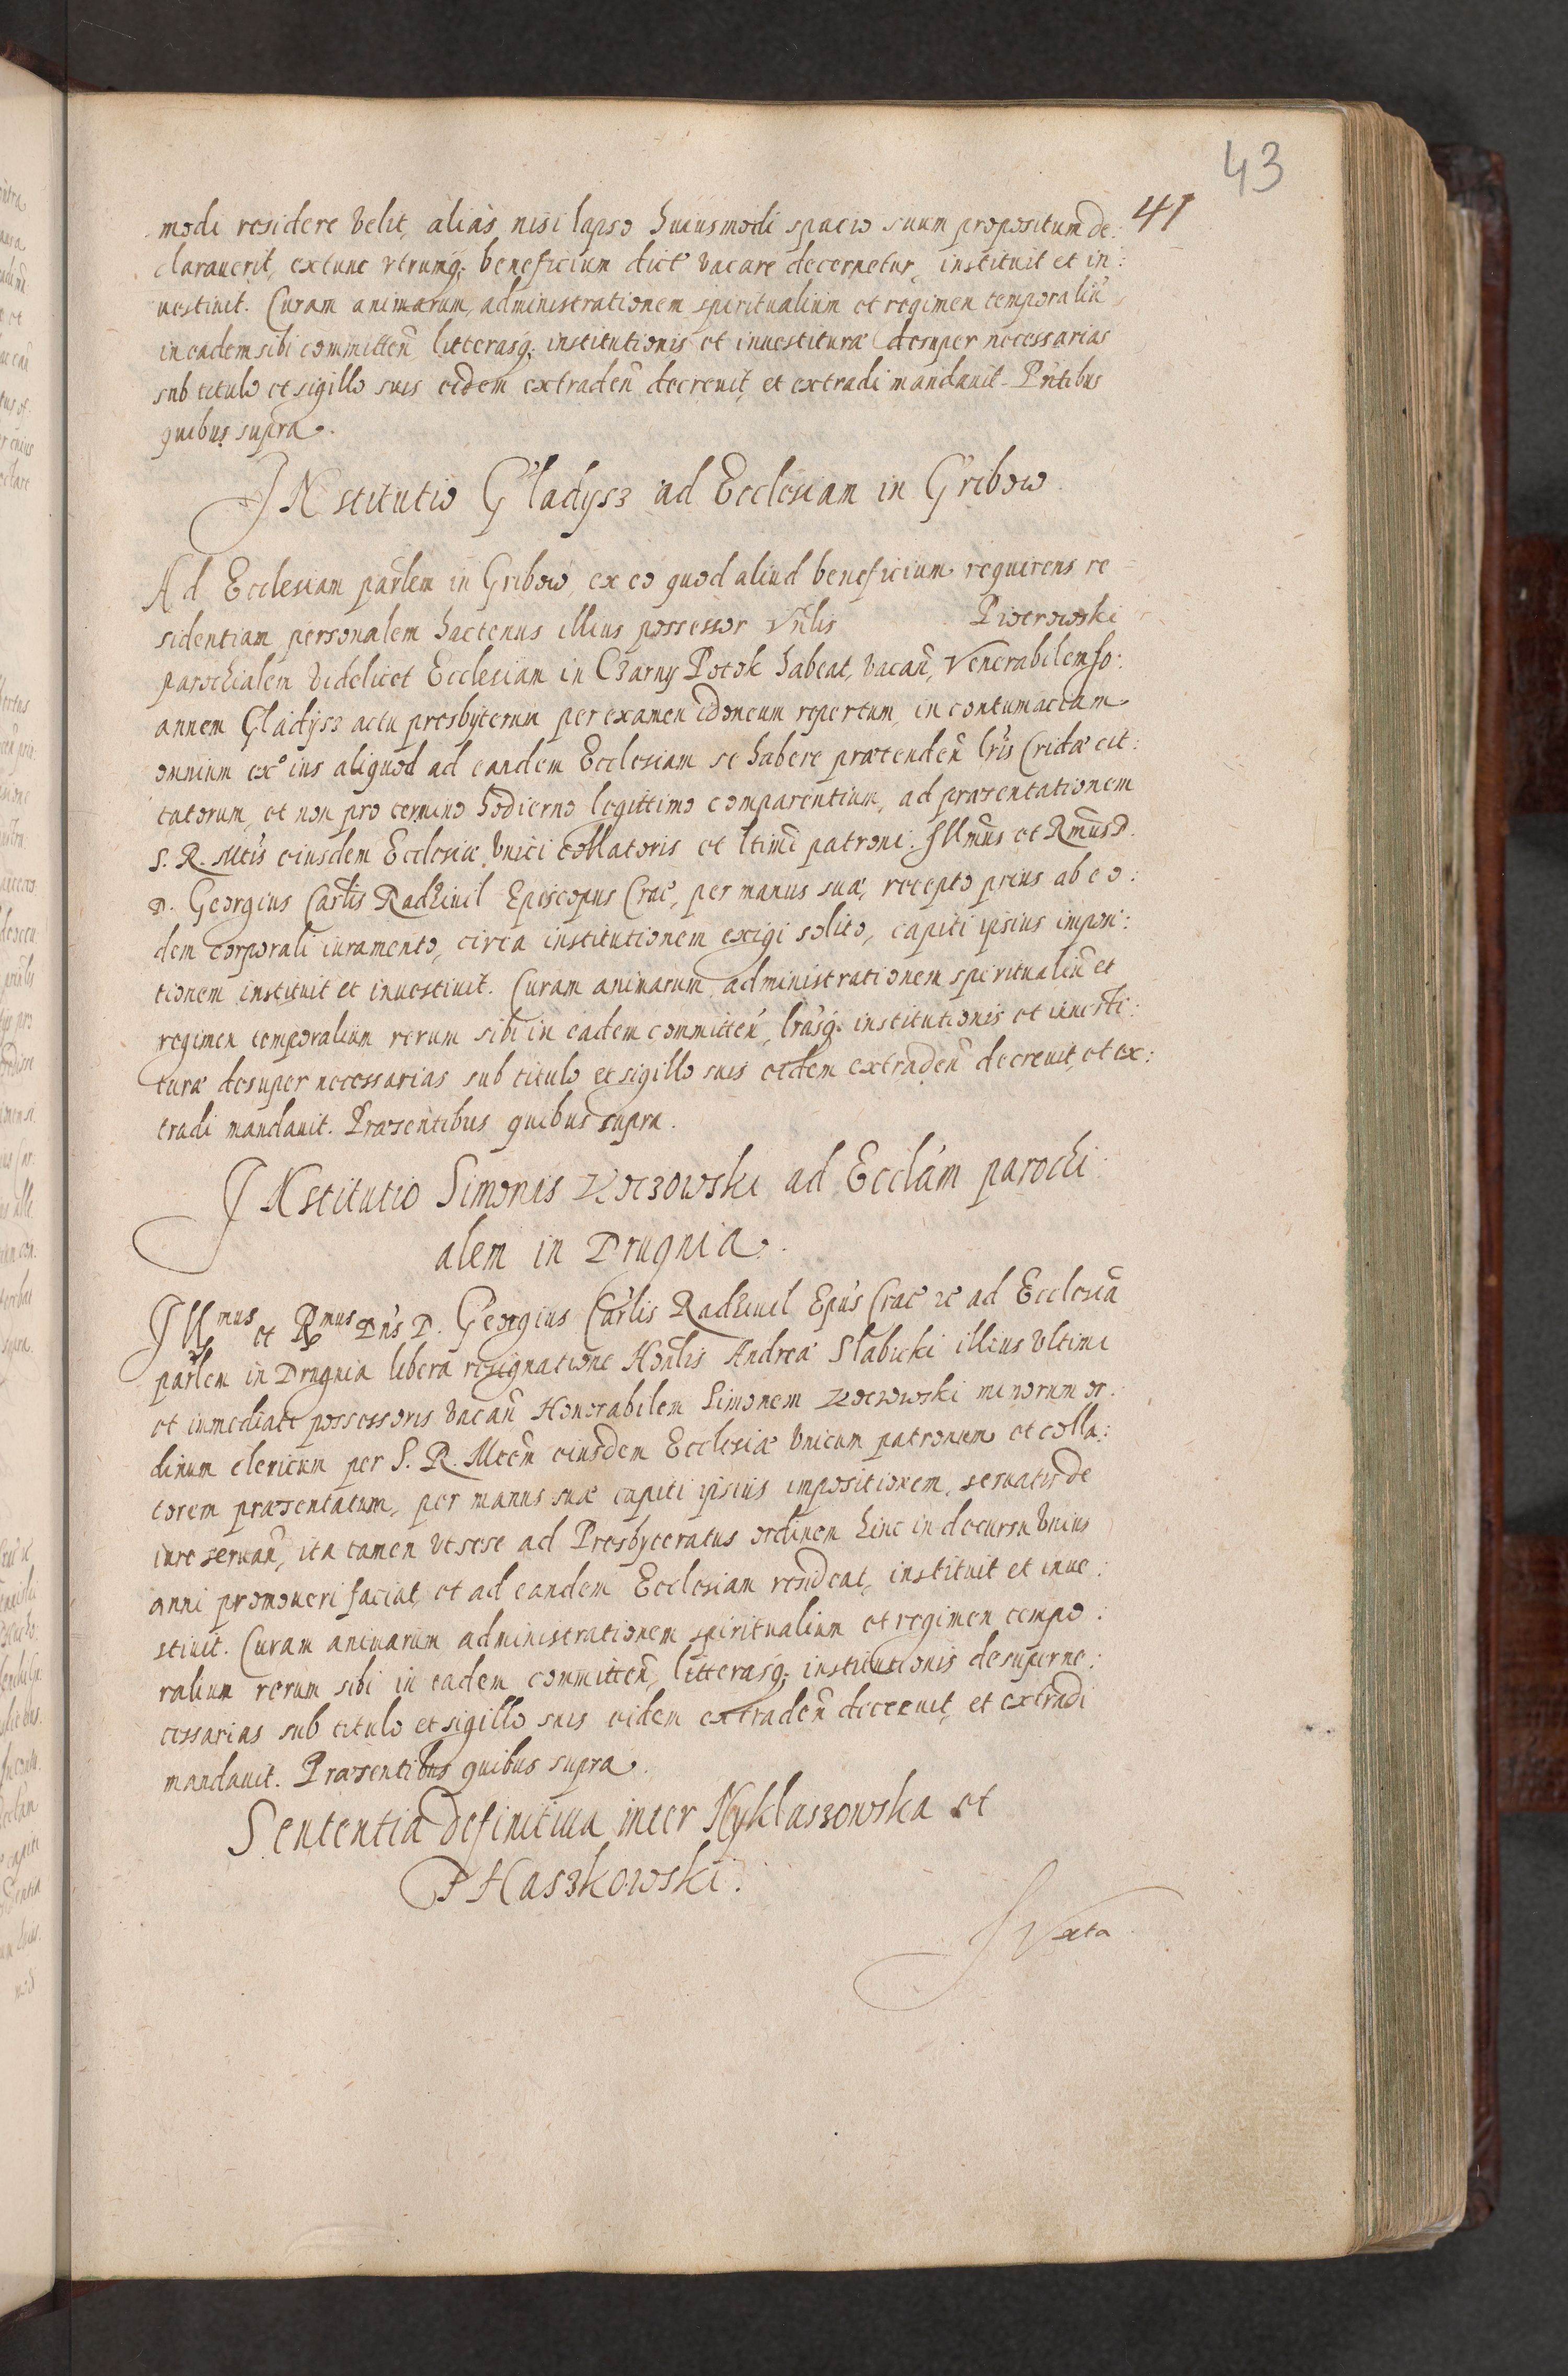 43
41
modi residere velit, alias nisi lapso huiusmodi spacio suum propositum de:
clarauerit, extunc vtrumq; beneficium dict' vacare decernetur, instituit et in:
uestiuit. Curam animarum, administrationem spiritualium et regimen temporaliũ
in eadem sibi committeñ litterasq; institutionis et inuestituræ desuper necessarias
sub titulo et sigillo suis eidem extradeñ decreuit, et extradi mandauit. Pñtibus
quibus supra.
INstitutio Gladysz ad Ecclesiam in Gribow
Ad Ecclesiam parlem in Gribow, ex eo quod aliud beneficium requirens re
sidentiam personalem hactenus illius possessor Vñlis Piotrowski
parochialem videlicet Ecclesiam in Czarny Potok habeat, vacañ, Venerabilem Jo:
annem Gladysz actu presbyterum per examen idoneum repertum, in contumaciam
omnium ex° ius aliquod ad eandem Ecclesiam se habere prætendeñ lr̃is Cridæ cit:
tatorum, et non pro termino hodierno legittimo comparentium, ad præsentationem
S. R. Mtis eiusdem Ecclesiæ vnici collatoris et ltimi patroni: Illmus et Rmus D.
D. Georgius Carlis Radziuil Episcopus Crac̃, per manus suæ, recepto prius ab eo:
dem corporali iuramento, circa institutionem exigi solito, capiti ipsius imposi:
tionem instituit et inuestiuit. Curam animarum administrationem spiritualiũ et
regimen temporalium rerum sibi in eadem committeñ, lrasq; institutionis et inuesti:
turæ desuper necessarias sub titulo et sigillo suis eidem extradeñ decreuit, et ex:
tradi mandauit. Præsentibus quibus supra.
INstitutio Simonis Koczowski ad Ecclam parochi:
alem in Drugnia.
Illmus et Rmus Dñs D. Georgius Carlis Radziuil Epus Crac̃ &c ad Ecclesiã
parlem in Drugnia libera resignatione Honlis Andreæ Slabicki illius vltimi
et immediati possessoris vacañ Honorabilem Simonem Koczowski minorum or:
dinum clericum per S. R. Mtem eiusdem Ecclesiæ vnicum patronum et colla:
torem præsentatum, per manus suæ capiti ipsius impositionem, seruatis de
iure seruañ, ita tamen vt sese ad Presbyteratus ordinem hinc in decursu vnius
anni promoueri faciat, et ad eandem Ecclesiam resideat, instituit et inue:
stiuit. Curam animarum administrationem spiritualium et regimen tempo:
ralium rerum sibi in eadem committeñ, litterasq; institutionis desuper ne:
cessarias sub titulo et sigillo suis eidem extradeñ decreuit, et extradi
mandauit. Præsentibus quibus supra.
Sententia definitiua inter Myklaszowska et
Haszkowski.
Iuxta